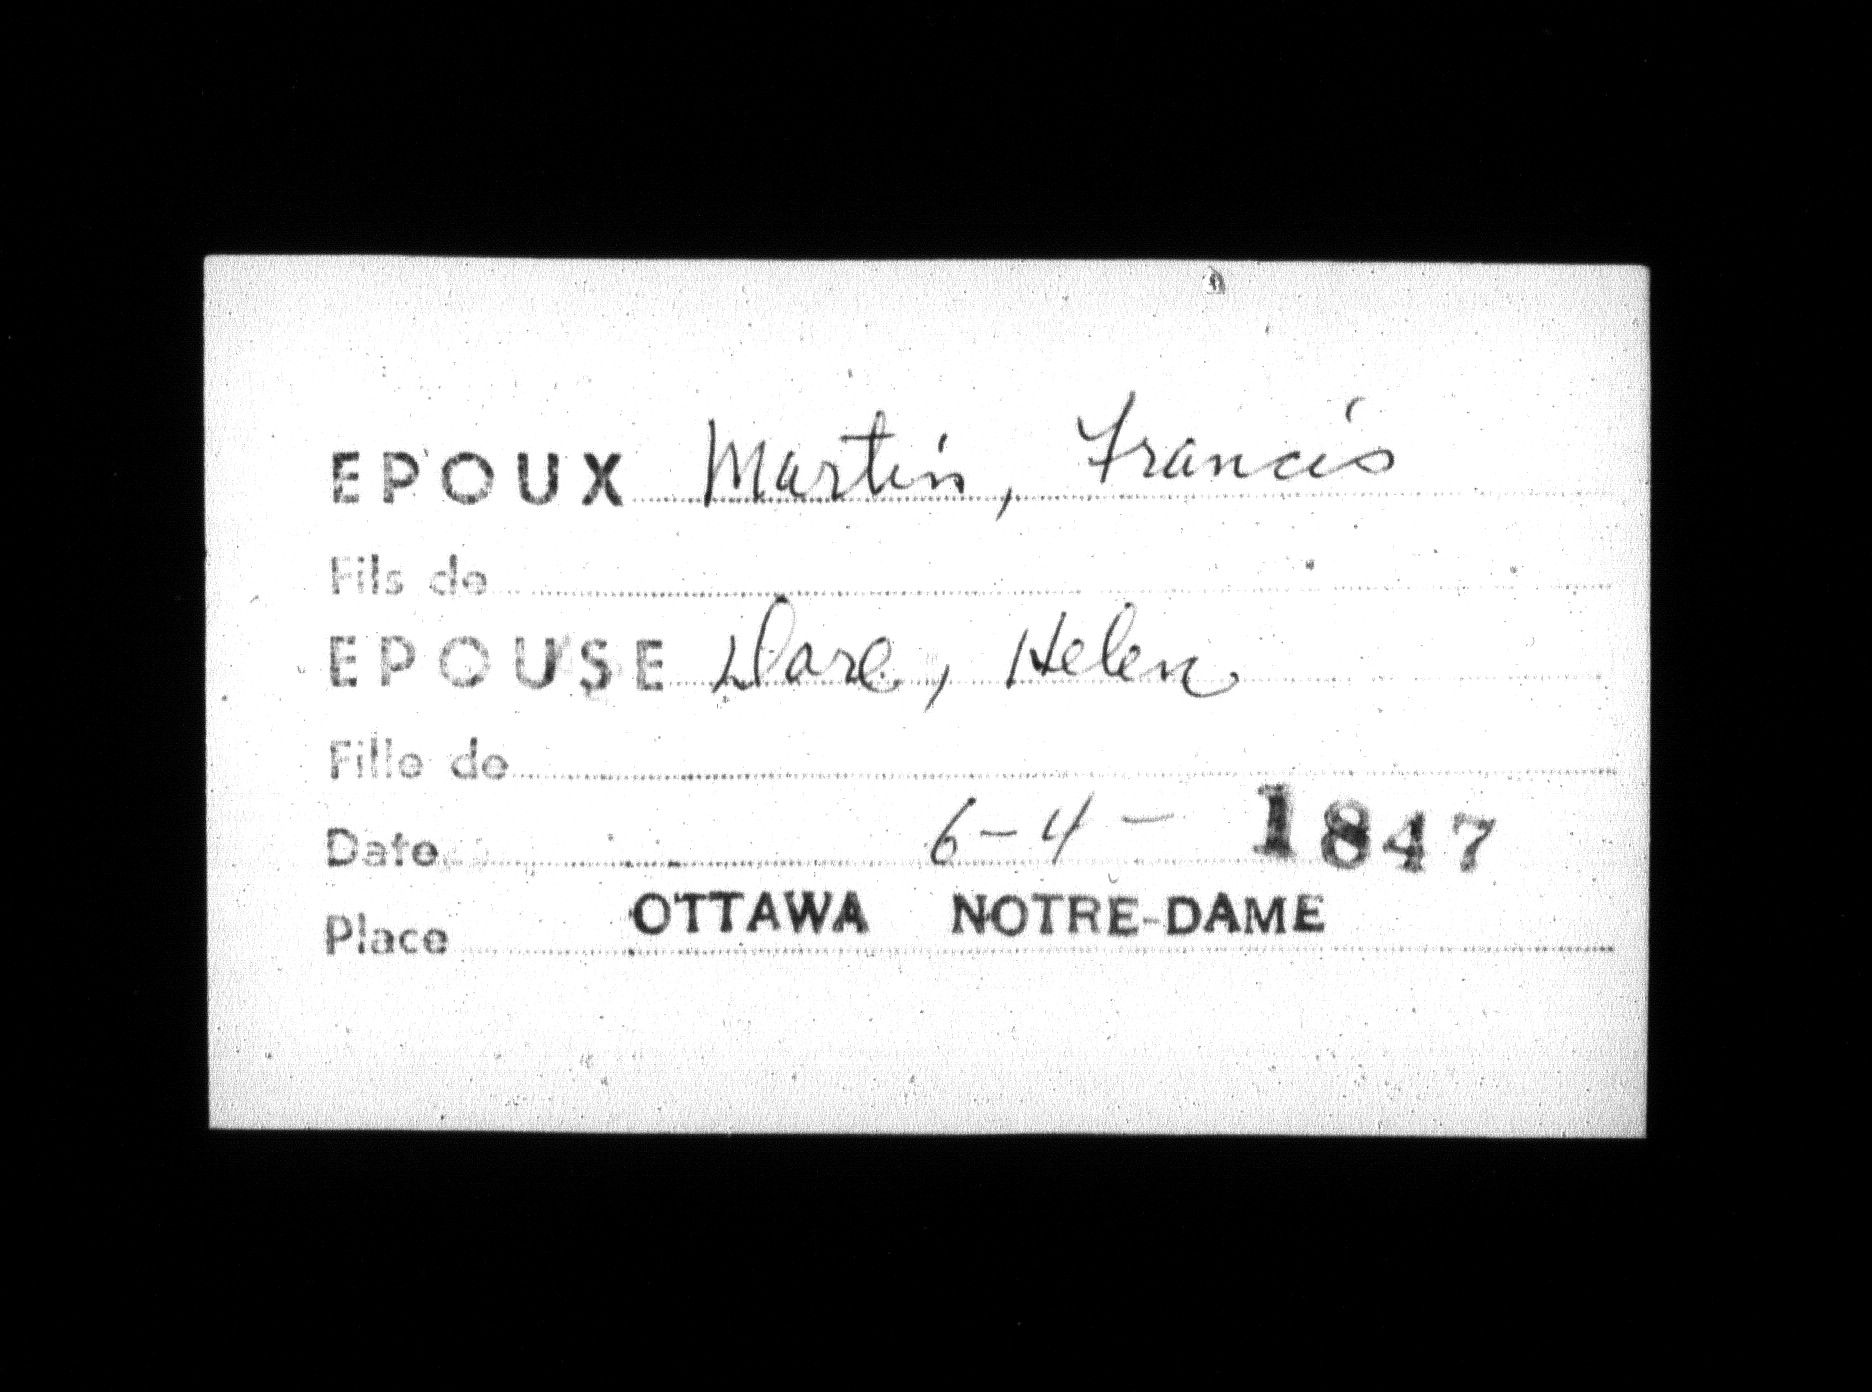 EPOUX Martin, Francis
Fils de
EPOUSE Dare, Helen
Fille de
Date 6-4- 1847
Place OTTAWA NOTRE-DAME